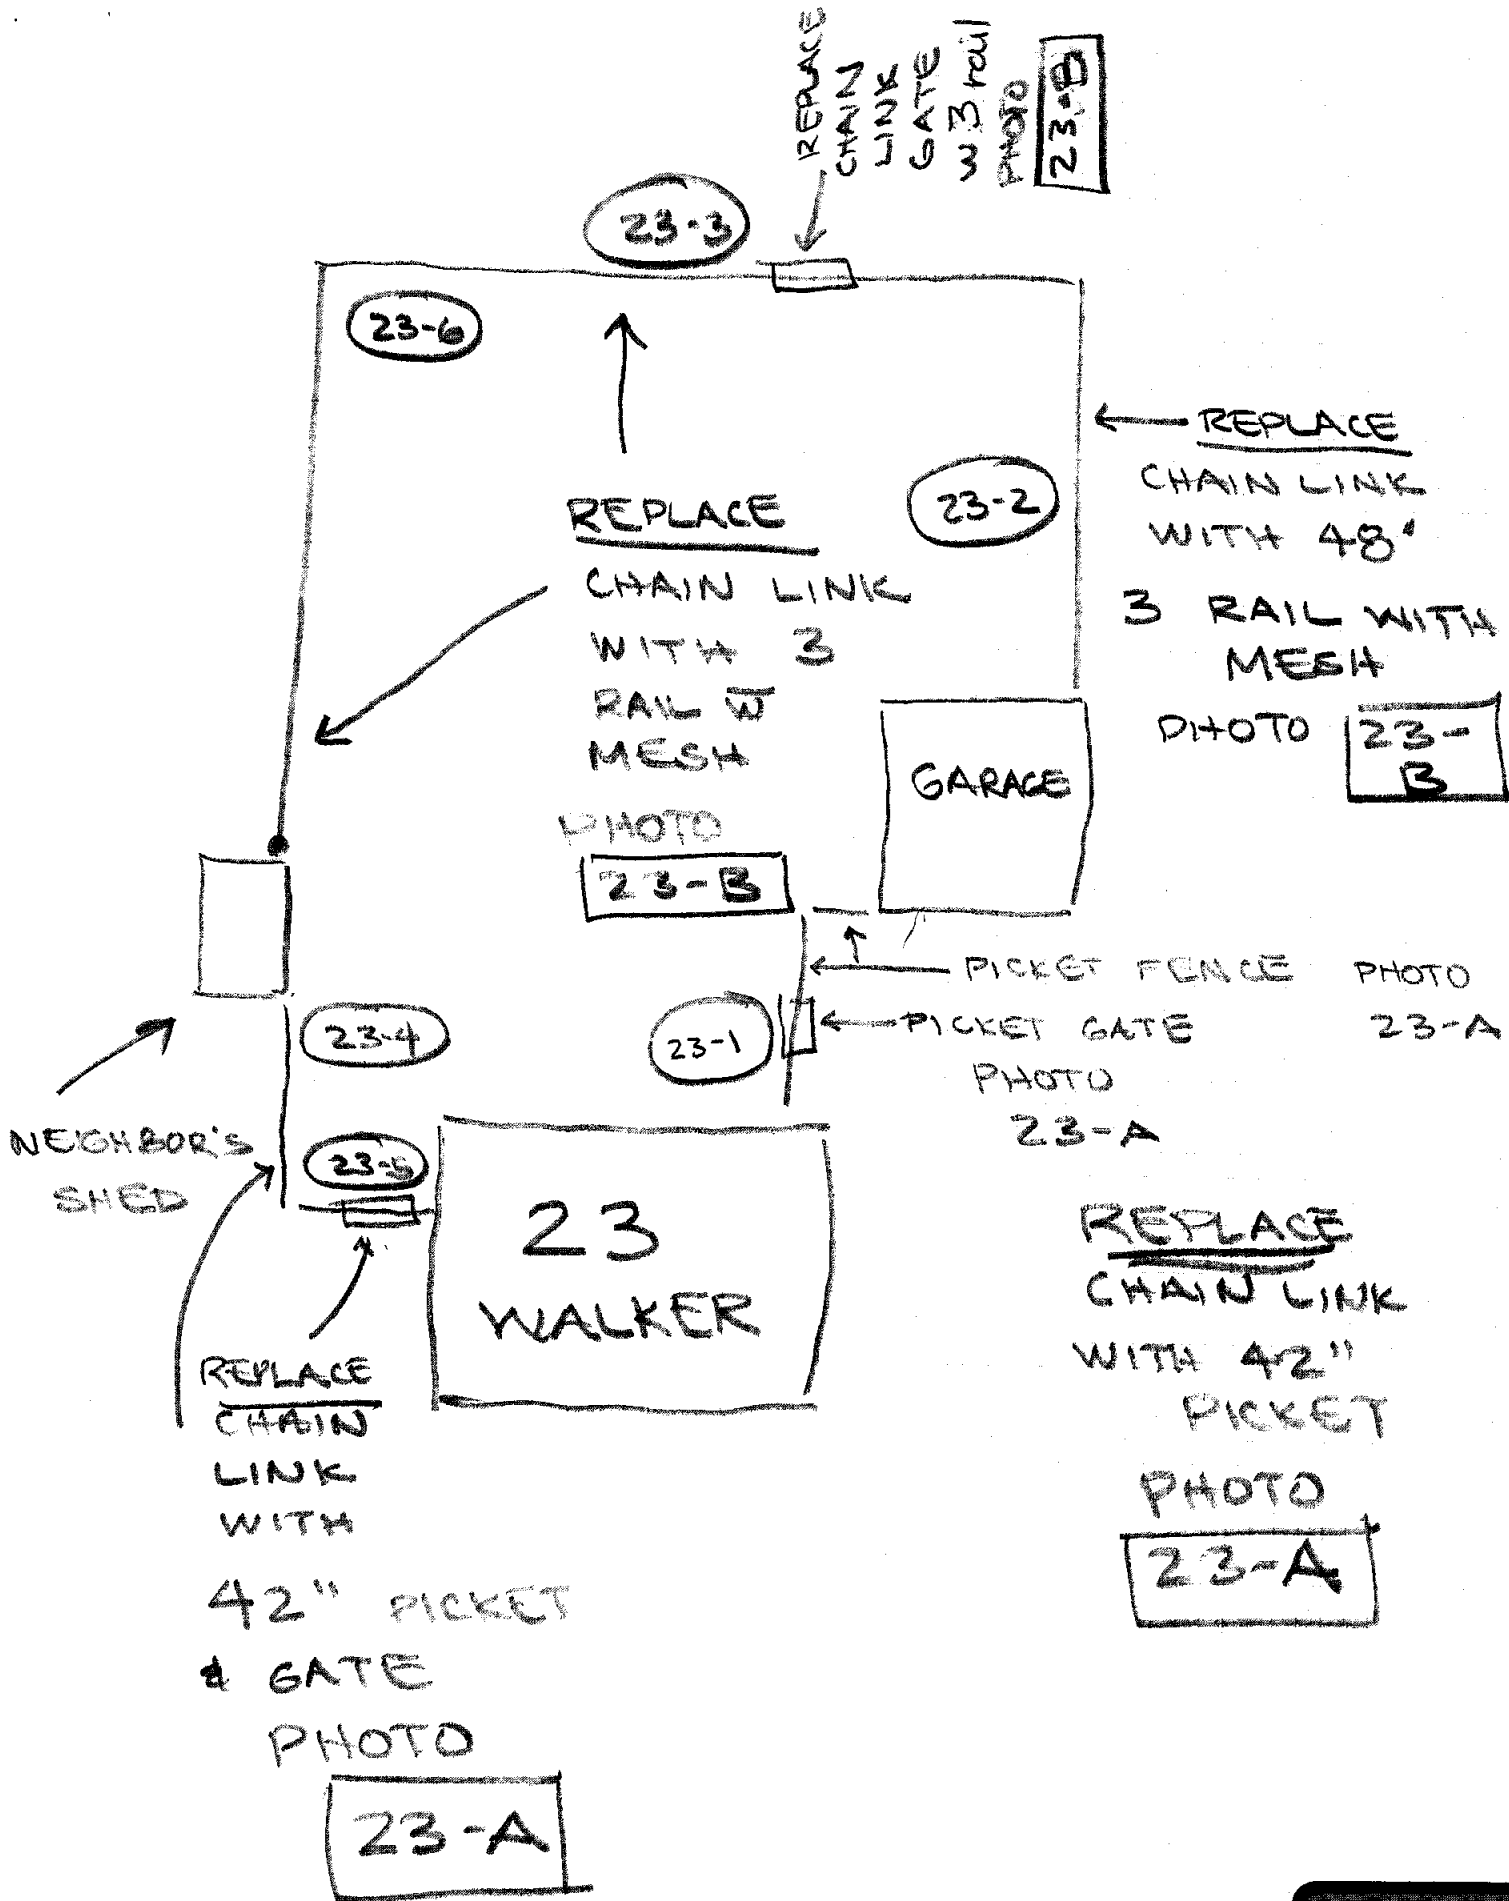 REPLACE
CHAIN
LINK
GATE
W 3 rail
PHOTO
23-B
23-3
23-6
REPLACE
CHAIN LINK
WITH 48"
3 RAIL WITH
MESH
PHOTO 23-
B
23-2
REPLACE
CHAIN LINK
WITH 3
RAIL W̅
MESH
PHOTO
23-B
GARAGE
PICKET FENCE PHOTO
23-A
PICKET GATE
PHOTO
23-A
23-4
23-1
NEIGHBOR'S
SHED
23-5
23
WALKER
REPLACE
CHAIN LINK
WITH 42"
PICKET
PHOTO
23-A
REPLACE
CHAIN
LINK
WITH
42" PICKET
& GATE
PHOTO
23-A